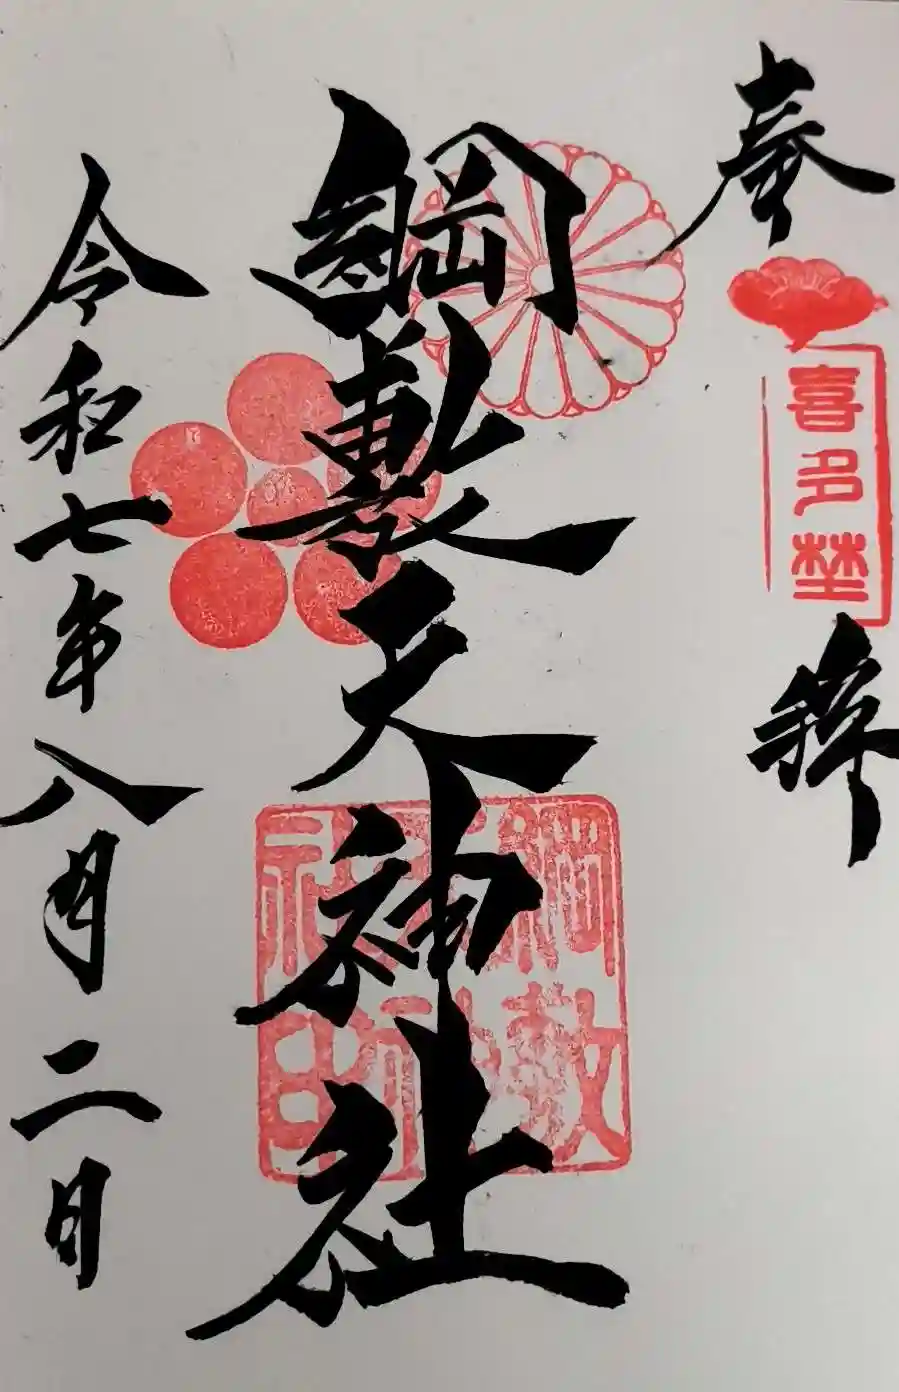 奉拝
喜多埜
綱敷天神社
綱敷天神社印
令和七年八月二日